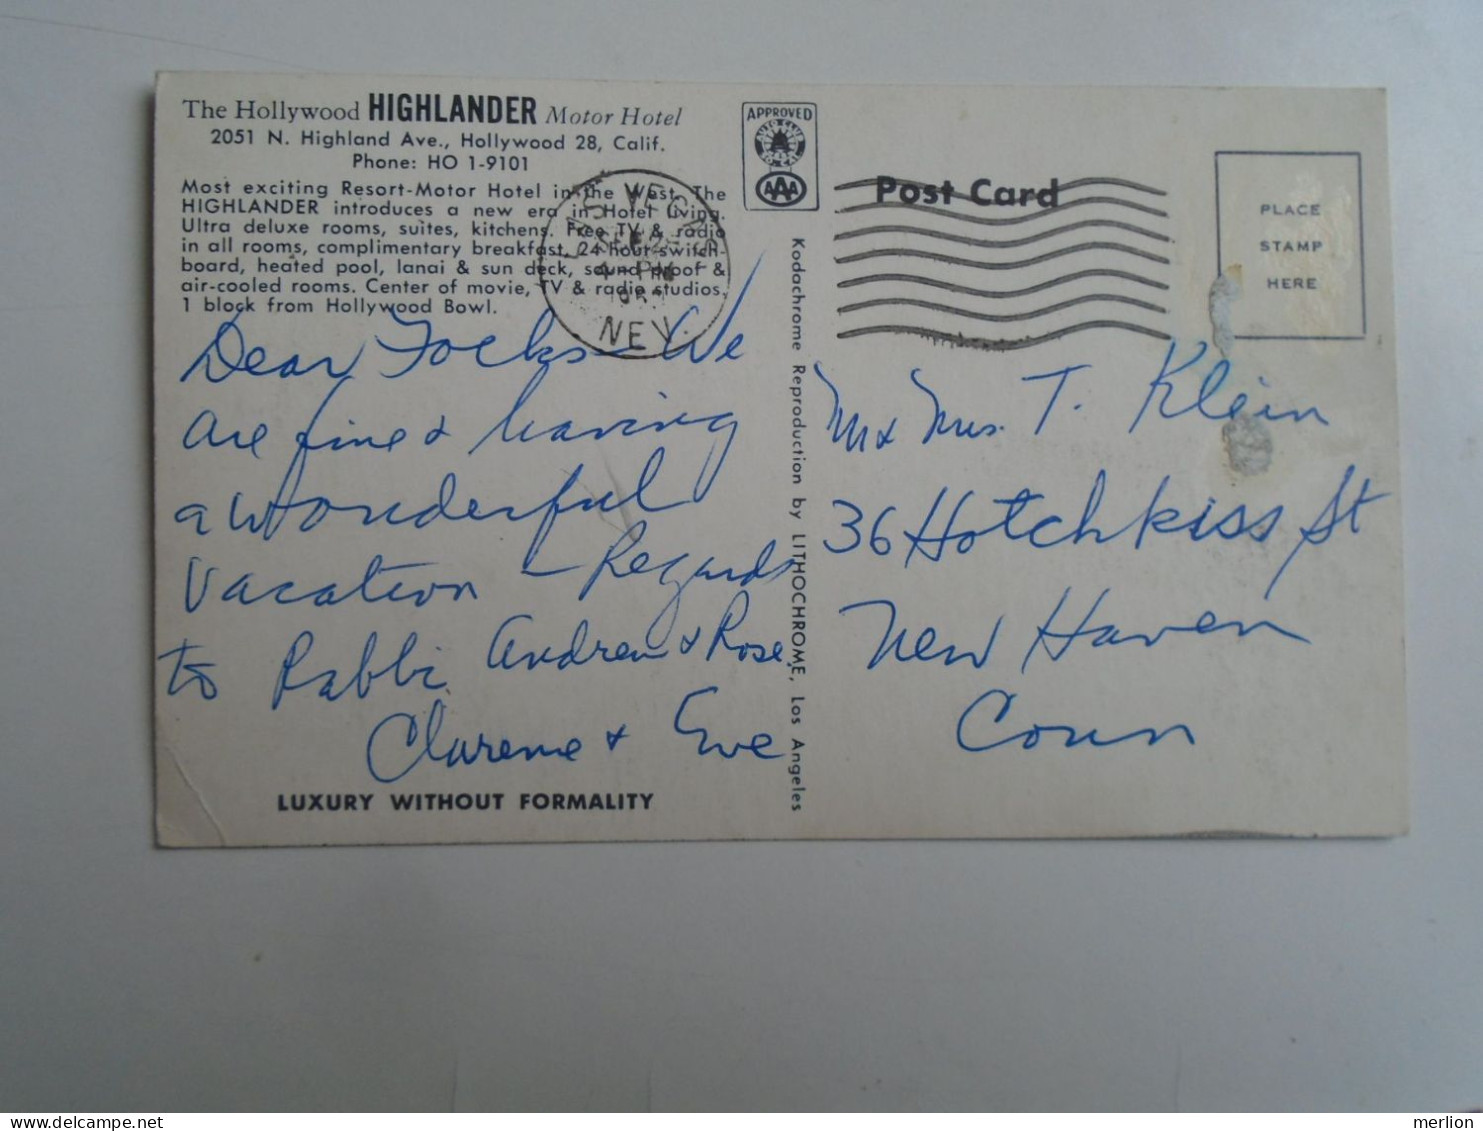 The Hollywood HIGHLANDER Motor Hotel
2051 N. Highland Ave., Hollywood 28, Calif.
Phone: HO 1-9101
Most exciting Resort-Motor Hotel in the West. The
HIGHLANDER introduces a new era in Hotel living.
Ultra deluxe rooms, suites, kitchens. Free TV & radio
in all rooms, complimentary breakfast, 24-hour switch-
board, heated pool, lanai & sun deck, sound proof &
air-cooled rooms. Center of movie, TV & radio studios.
1 block from Hollywood Bowl.
Dear Folks - We
are fine & having
a wonderful
vacation - Regards
to Rabbi Andrew & Rose
Clarence & Eve
LUXURY WITHOUT FORMALITY
LAS VEGAS
PM
NEV.
APPROVED
AUTO CLUB
SO. CAL
AAA
Kodachrome Reproduction by LITHOCHROME, Los Angeles
Post Card
PLACE
STAMP
HERE
M & Mrs. T. Klein
36 Hotchkiss St
New Haven
Conn
merlion